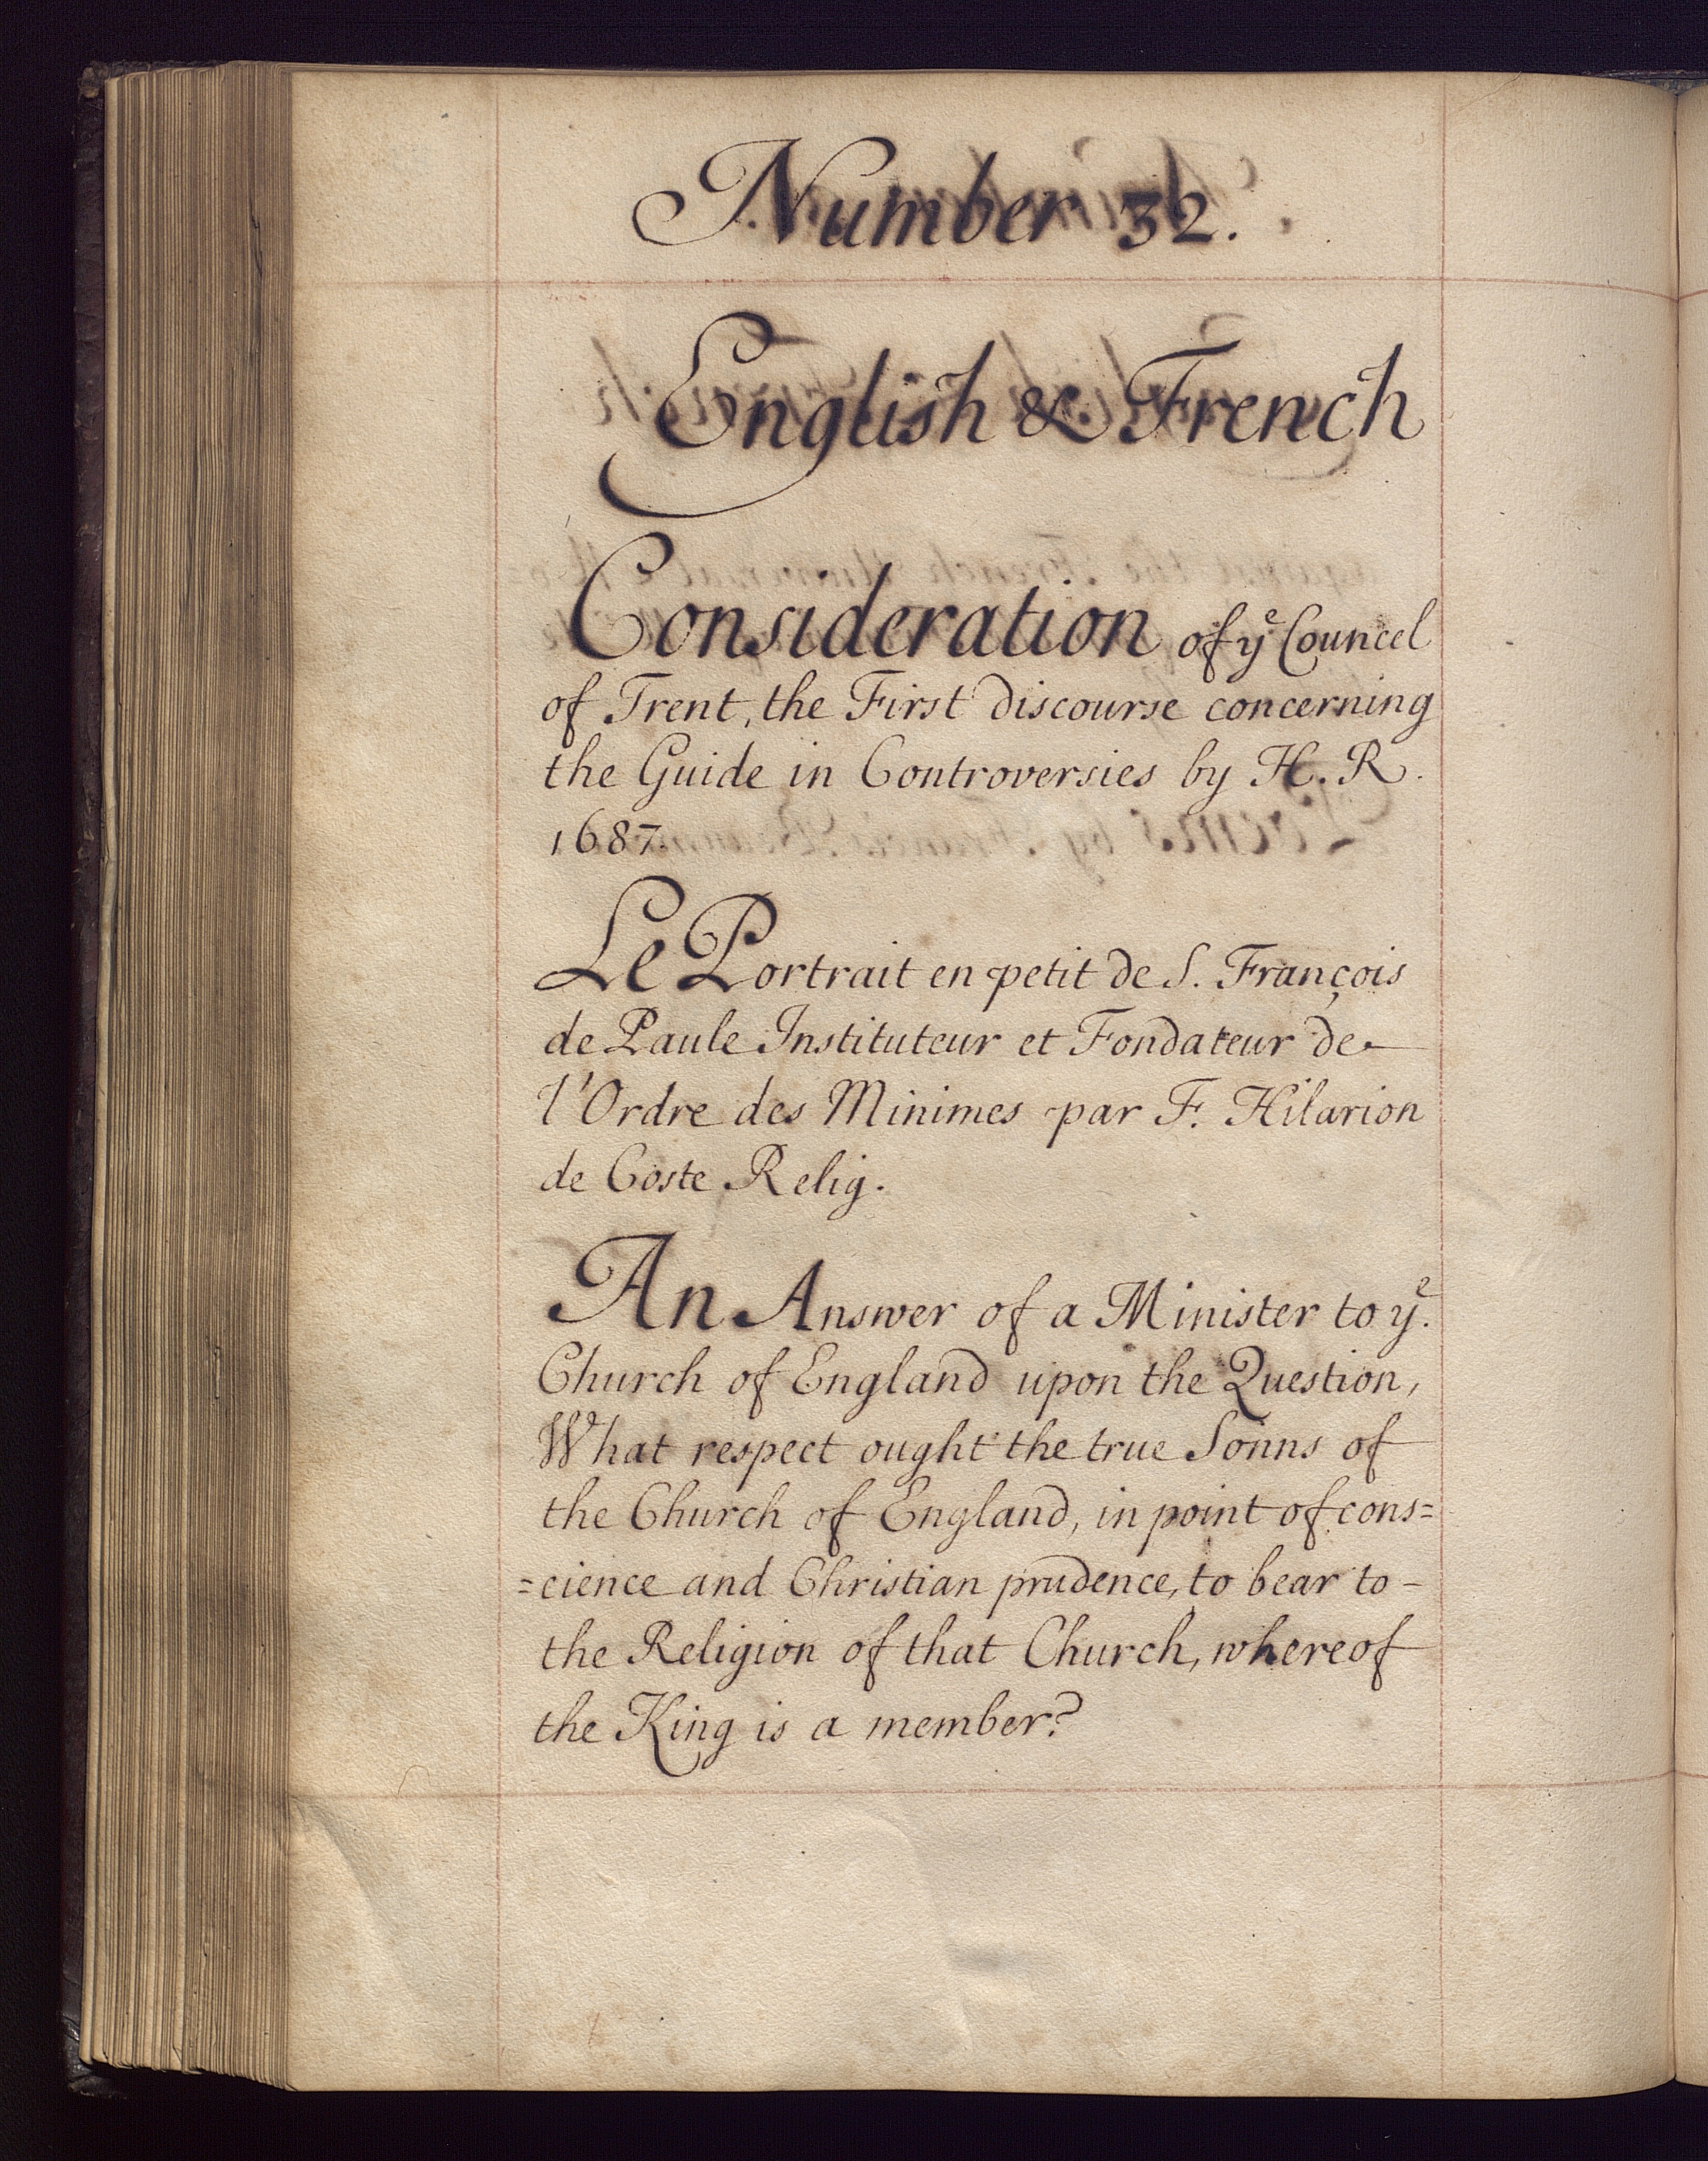 Number 32.
English & French
Consideration of yͤ Councel
of Trent, the First discourse concerning
the Guide in Controversies by H. R.
1687.
Le Portrait en petit de S. François
de Paule Instituteur et Fondateur de
l'Ordre des Minimes par F. Hilarion
de Coste Relig.
An Answer of a Minister to yͤ.
Church of England upon the Question,
What respect ought the true Sonns of
the Church of England, in point of cons=
=cience and Christian prudence, to bear to -
the Religion of that Church, whereof
the King is a member?